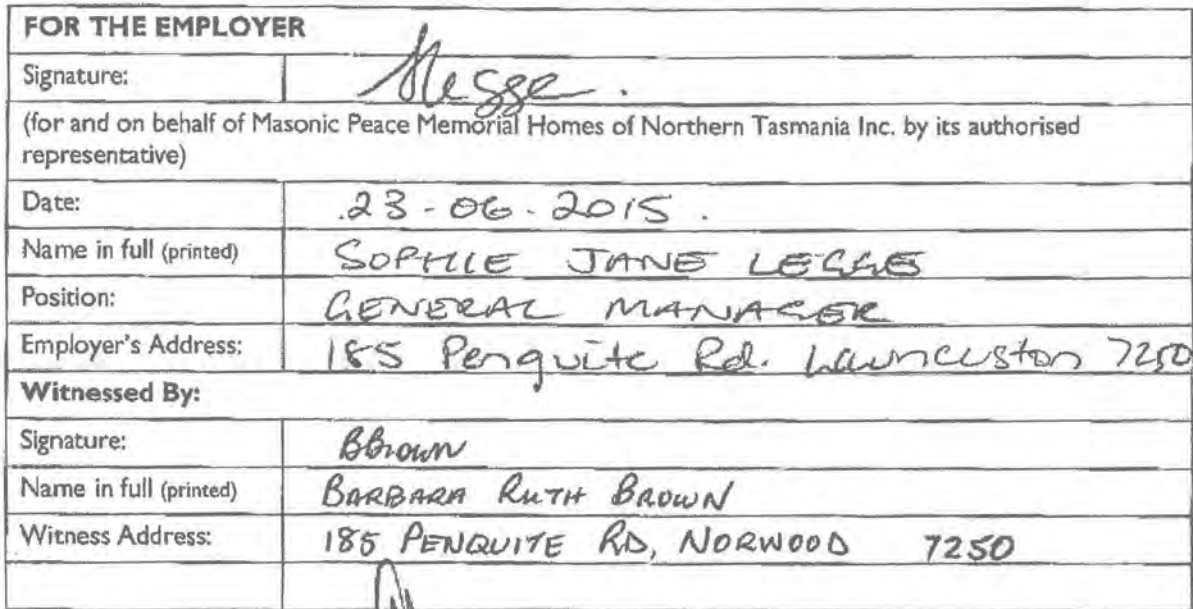 FOR THE EMPLOYER
Signature: SLegge.
(for and on behalf of Masonic Peace Memorial Homes of Northern Tasmania Inc. by its authorised
representative)
Date: 23-06-2015.
Name in full (printed) SOPHIE JANE LEGGE
Position: GENERAL MANAGER
Employer's Address: 185 Penquite Rd. Launceston 7250
Witnessed By:
Signature: BBrown
Name in full (printed) BARBARA RUTH BROWN
Witness Address: 185 PENQUITE RD, NORWOOD 7250